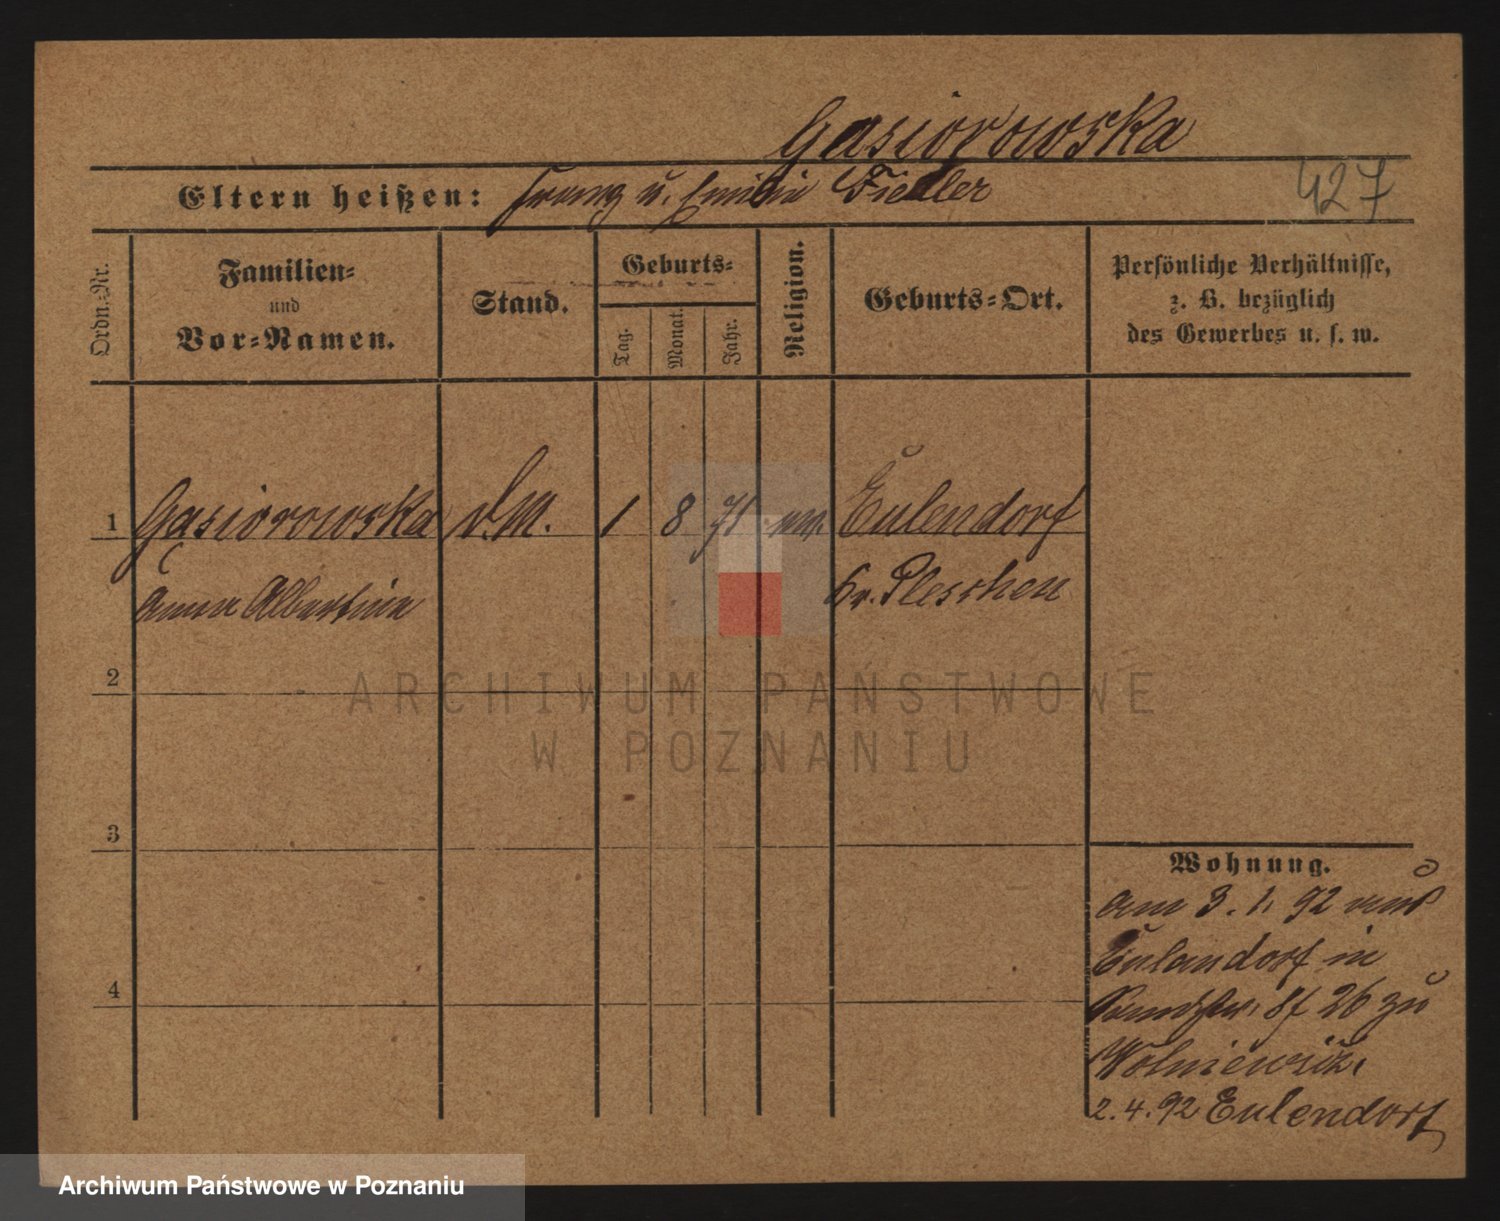 Gasiorowska
Eltern heißen: Franz u. Emilie Fiedler
427
Ordn.-Nr.
Familien-
und
Vor-Namen.
Stand.
Geburts-
Tag.
Monat.
Jahr.
Religion.
Geburts-Ort.
Persönliche Verhältnisse,
z. B. bezüglich
des Gewerbes u. s. w.
1 Gąsiorowska d.M. 1 8 71 Eulendorf
Anna Albertine Kr. Pleschen
2
3
4
Wohnung.
am 3. 1. 92 aus
Eulendorf in
26 zu
Wolniewicz.
2.4.92 Eulendorf
ARCHIWUM PAŃSTWOWE
W POZNANIU
Archiwum Państwowe w Poznaniu